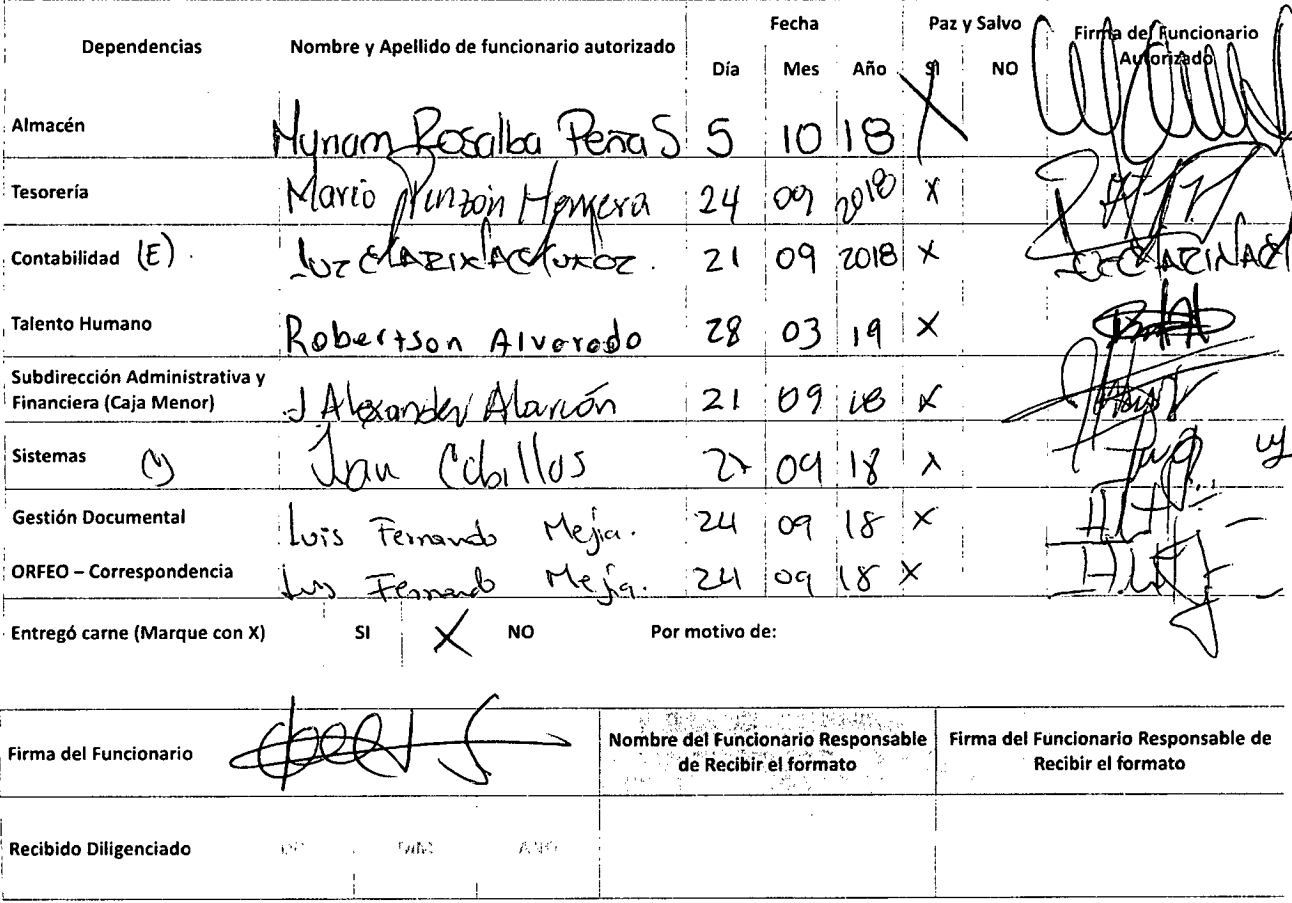 Dependencias Nombre y Apellido de funcionario autorizado Fecha Paz y Salvo Firma del Funcionario Autorizado
Día Mes Año SI NO
Almacén Myriam Rosalba Peña S 5 10 18 X
Tesorería Mario Pinzón Herrera 24 09 2018 X
Contabilidad (E) Luz Marina Muñoz. 21 09 2018 X
Talento Humano Robertson Alvarado 28 03 19 X
Subdirección Administrativa y
Financiera (Caja Menor) J Alexander Alarcón 21 09 18 X
Sistemas Ivan Cubillos 09 18 X
Gestión Documental Luis Fernando Mejia. 24 09 18 X
ORFEO – Correspondencia Luis Fernando Mejia. 24 09 18 X
Entregó carne (Marque con X) SI X NO Por motivo de:
Firma del Funcionario Nombre del Funcionario Responsable de Recibir el formato Firma del Funcionario Responsable de Recibir el formato
Recibido Diligenciado DD MM AÑO